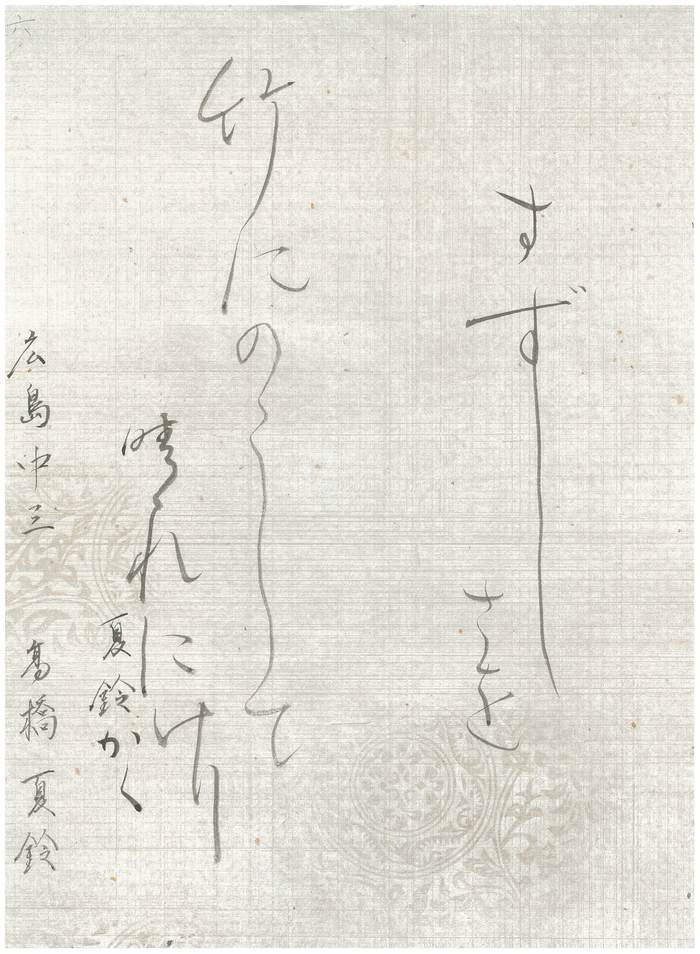 すずしさを
竹にのこして
晴れにけり
夏鈴かく
広島中三 高橋夏鈴
六